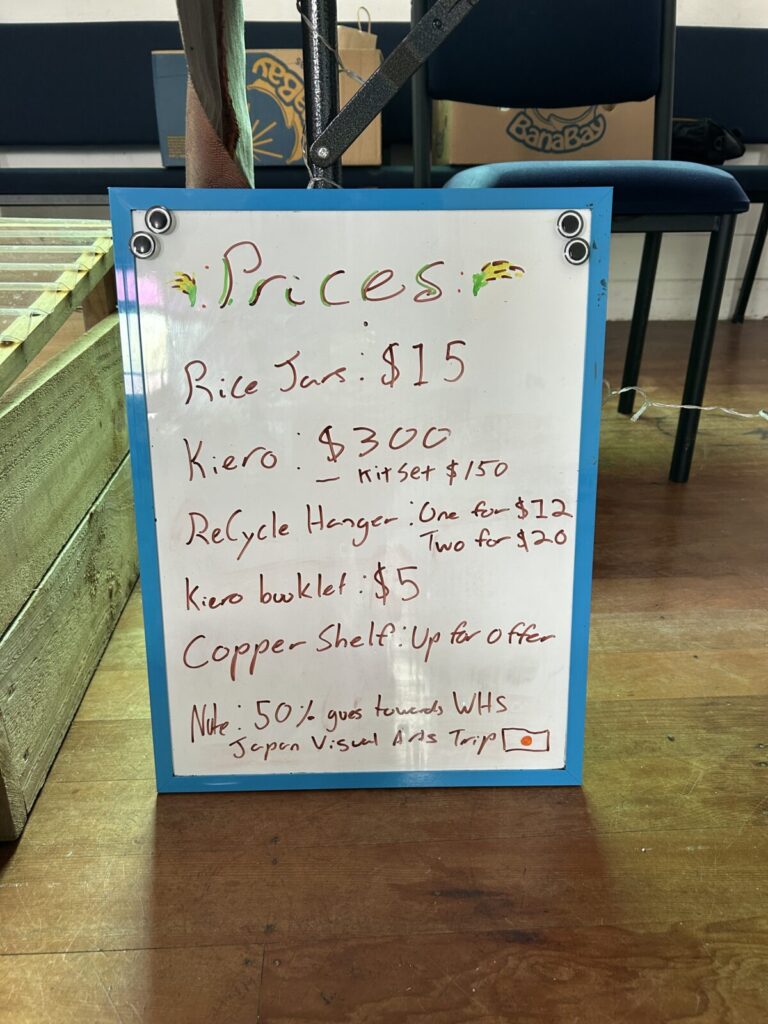 BanaBay
BanaBay
:Prices:
Rice Jars: $15
Kiero: $300
— Kitset $150
ReCycle Hanger: One for $12
Two for $20
Kiero booklet: $5
Copper Shelf: Up for offer
Note: 50% goes towards WHS
Japan Visual Arts Trip